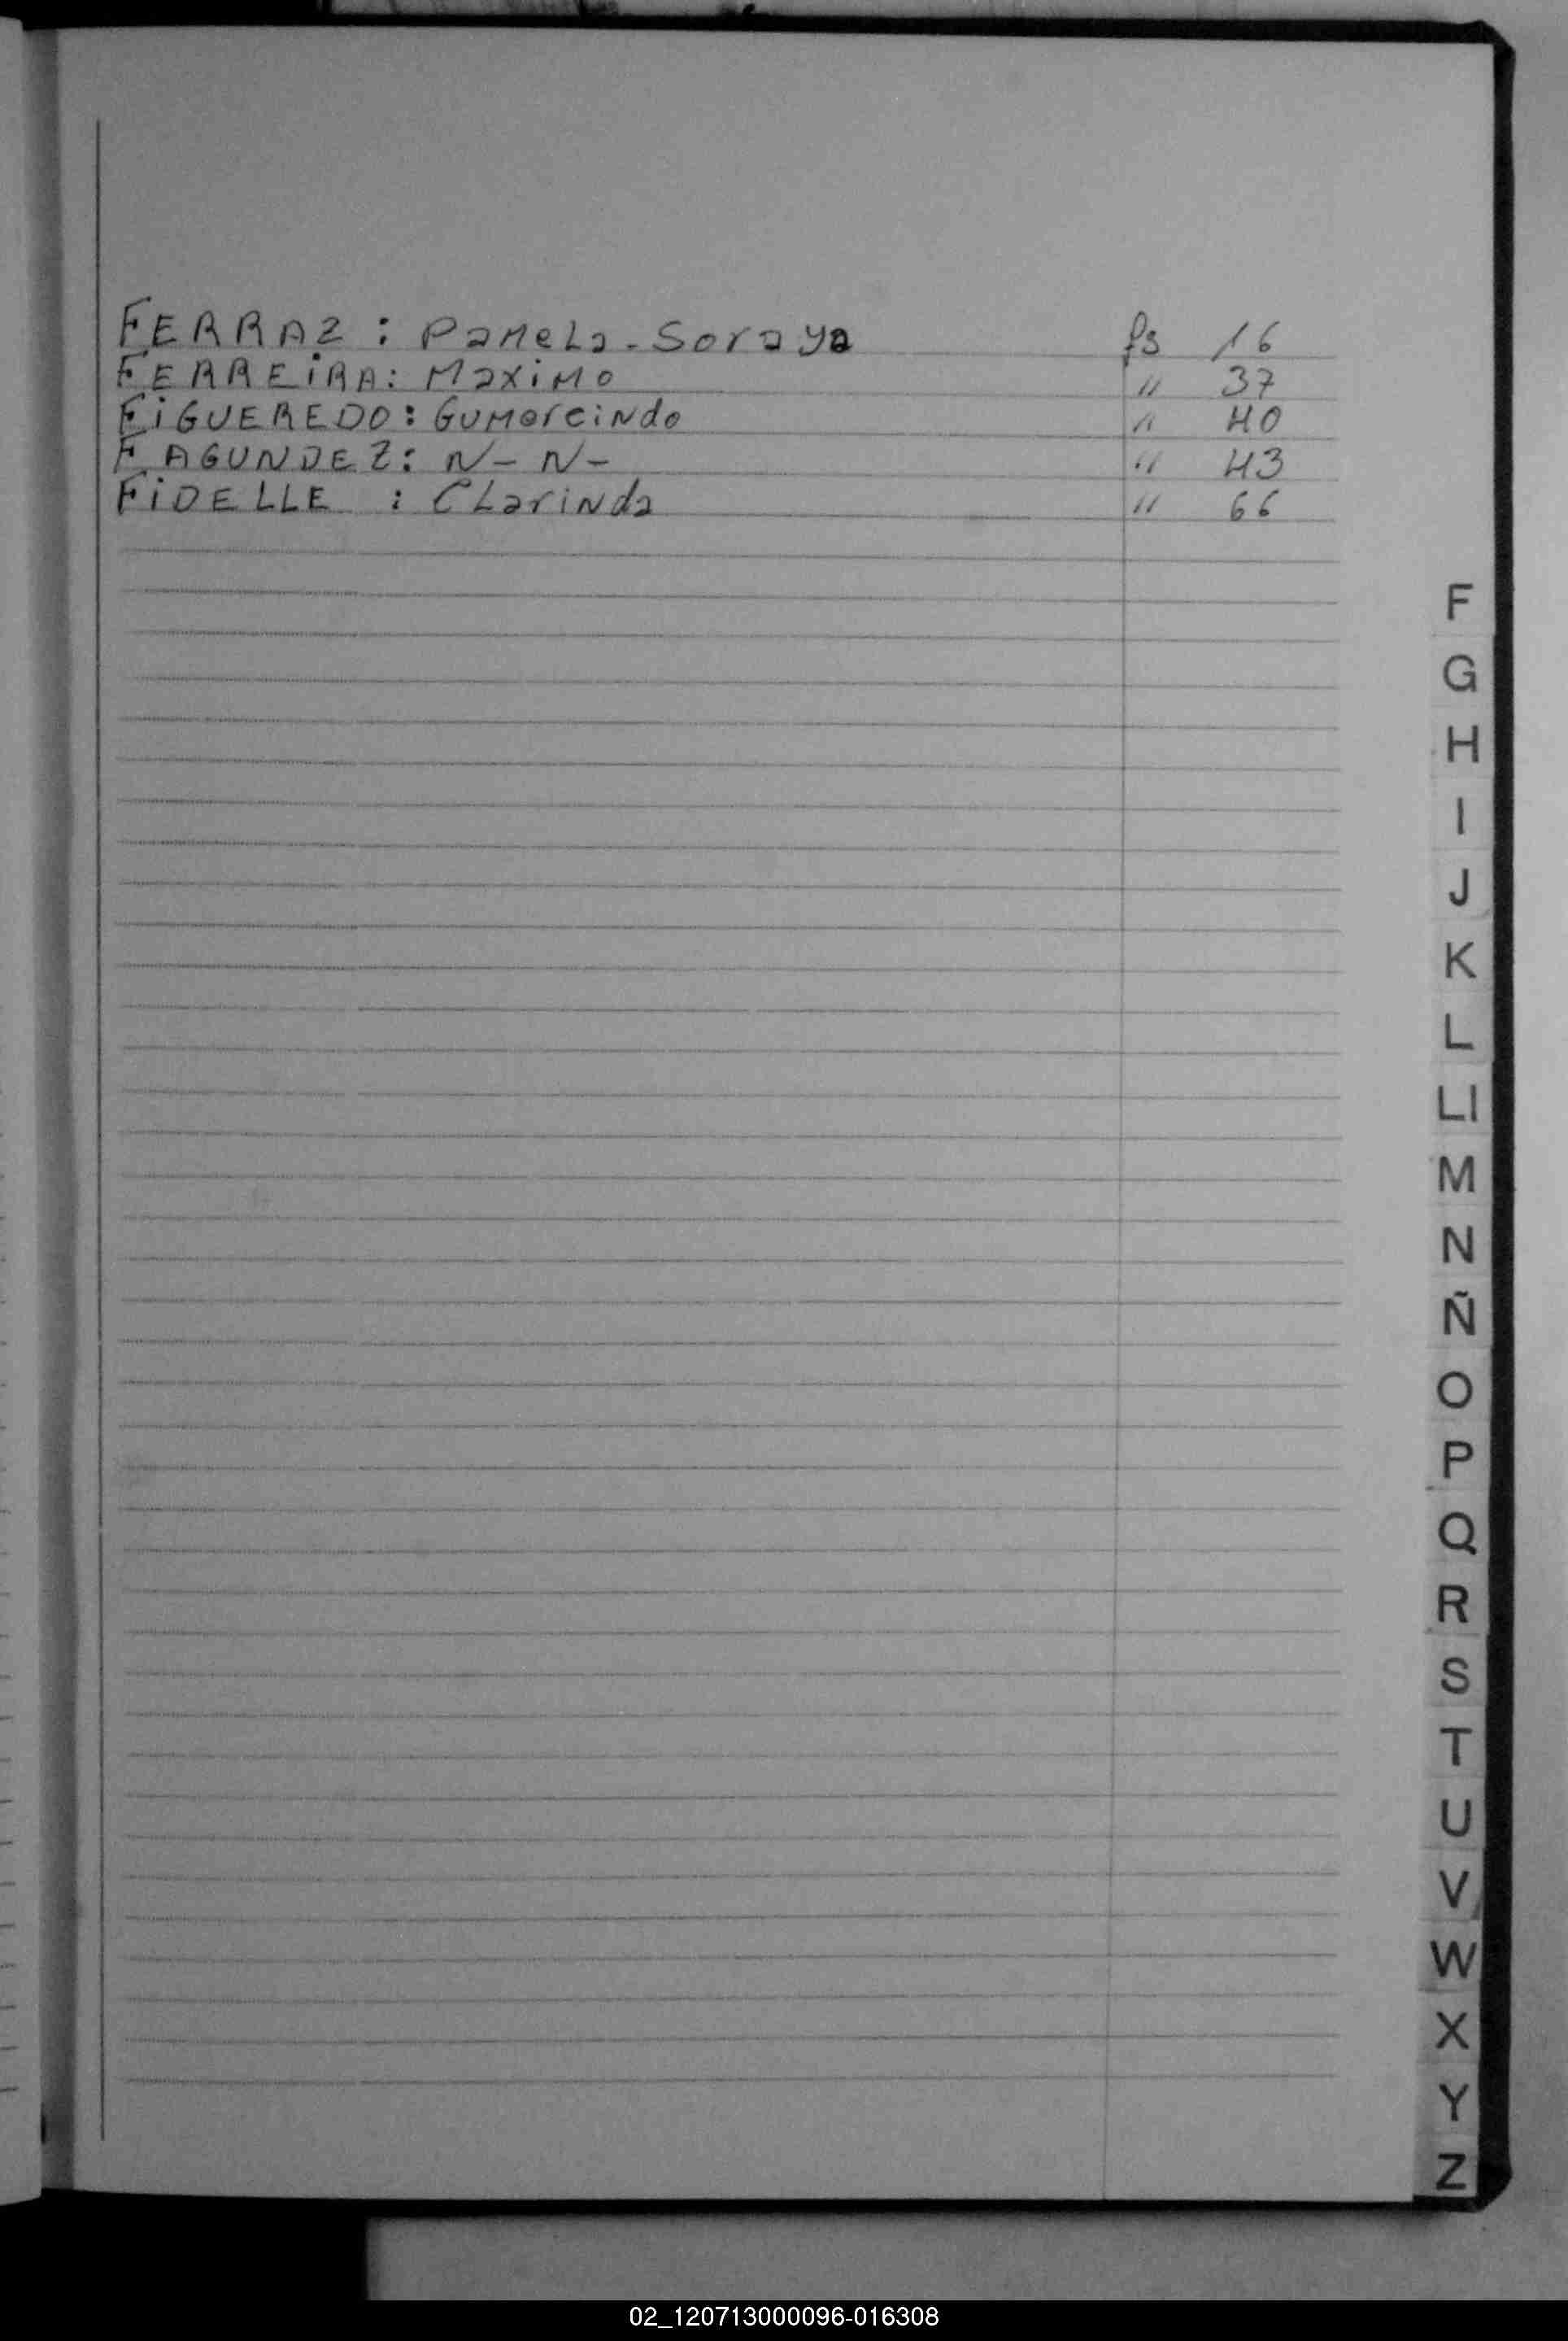 FERRAZ : Pamela - Soraya fs 16
FERREIRA: Maximo " 37
FIGUEREDO: Gumercindo " 40
FAGUNDEZ: N- N- " 43
FIDELLE : Clarinda " 66
F
G
H
I
J
K
L
Ll
M
N
Ñ
O
P
Q
R
S
T
U
V
W
X
Y
Z
02_120713000096-016308